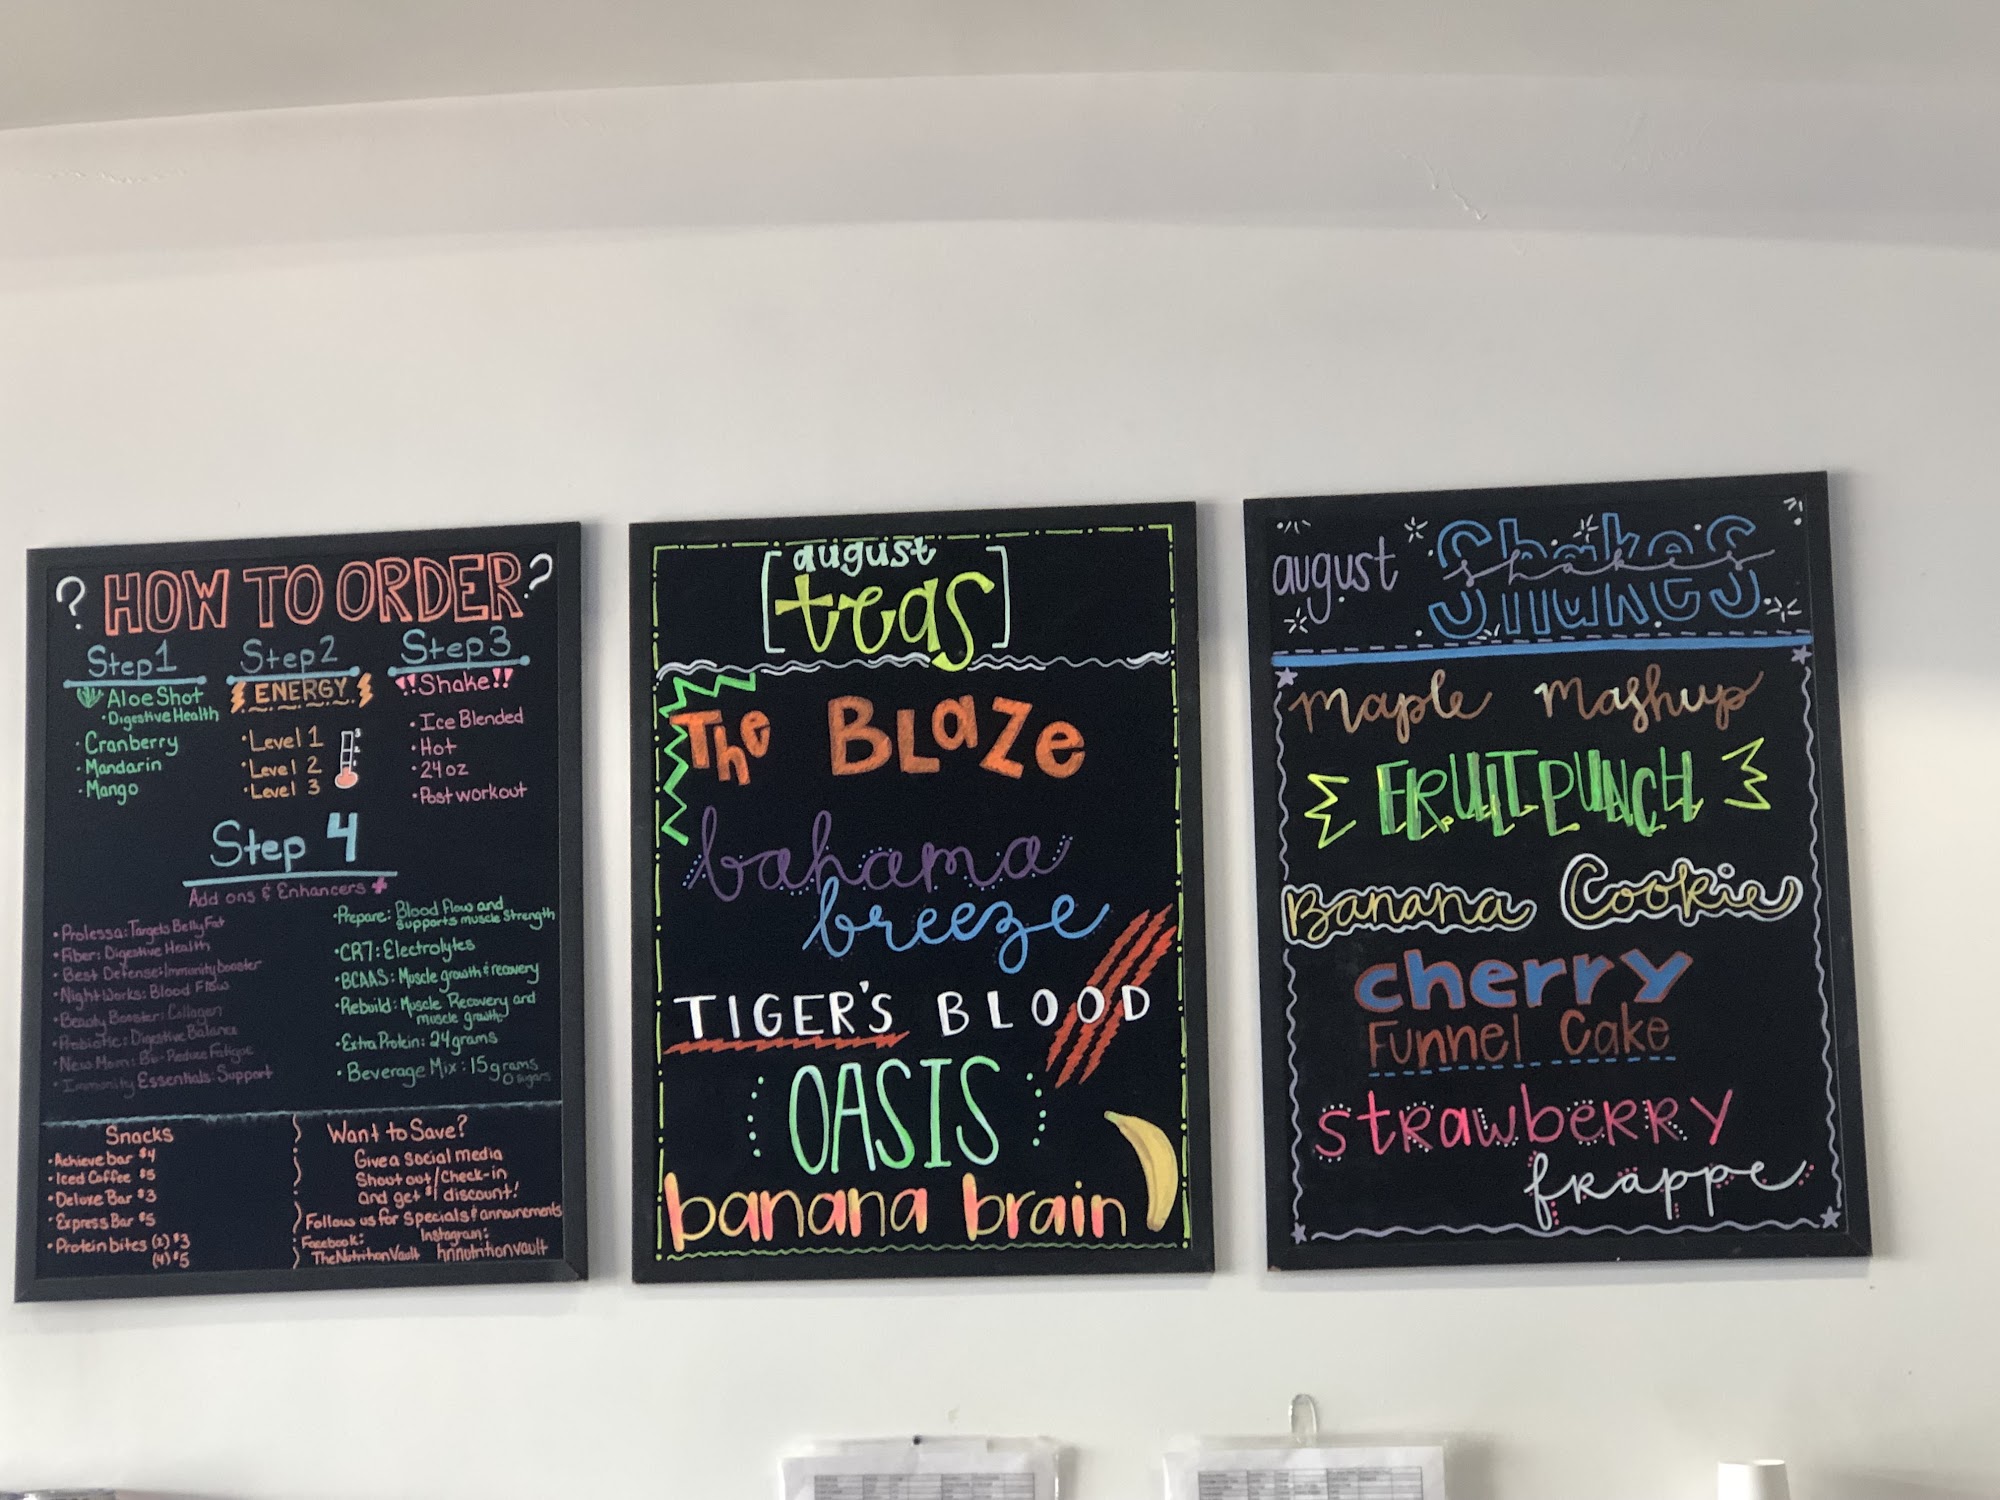 ? HOW TO ORDER ?
Step 1
Aloe Shot
• Digestive Health
• Cranberry
• Mandarin
• Mango
Step 2
ENERGY
• Level 1
• Level 2
• Level 3
Step 3
!! Shake !!
• Ice Blended
• Hot
• 24 oz
• Post workout
Step 4
Add ons & Enhancers +
• Prolessa: Targets Belly Fat
• Fiber: Digestive Health
• Best Defense: Immunity booster
• Night Works: Blood Flow
• Beauty Booster: Collagen
• Probiotic: Digestive Balance
• New Mom: Bio-Reduce Fatigue
• Immunity Essentials: Support
• Prepare: Blood flow and
supports muscle strength
• CR7: Electrolytes
• BCAAS: Muscle growth & recovery
• Rebuild: Muscle Recovery and
muscle growth
• Extra Protein: 24 grams
• Beverage Mix: 15 grams
0 sugars
Snacks
• Achieve bar $4
• Iced Coffee $5
• Deluxe Bar $3
• Express Bar $5
• Protein bites (2) $3
(4) $5
Want to Save?
Give a social media
Shout out/Check-in
and get $1 discount!
Follow us for specials & announcements
Facebook:
TheNutritionVault
Instagram:
hnnutritionvault
[august
teas]
The BLaZe
bahama
breeze
TIGER'S BLOOD
OASIS
banana brain
august Shakes
shakes
maple mashup
FRUIT PUNCH
Banana Cookie
cherry
Funnel Cake
strawberry
frappe